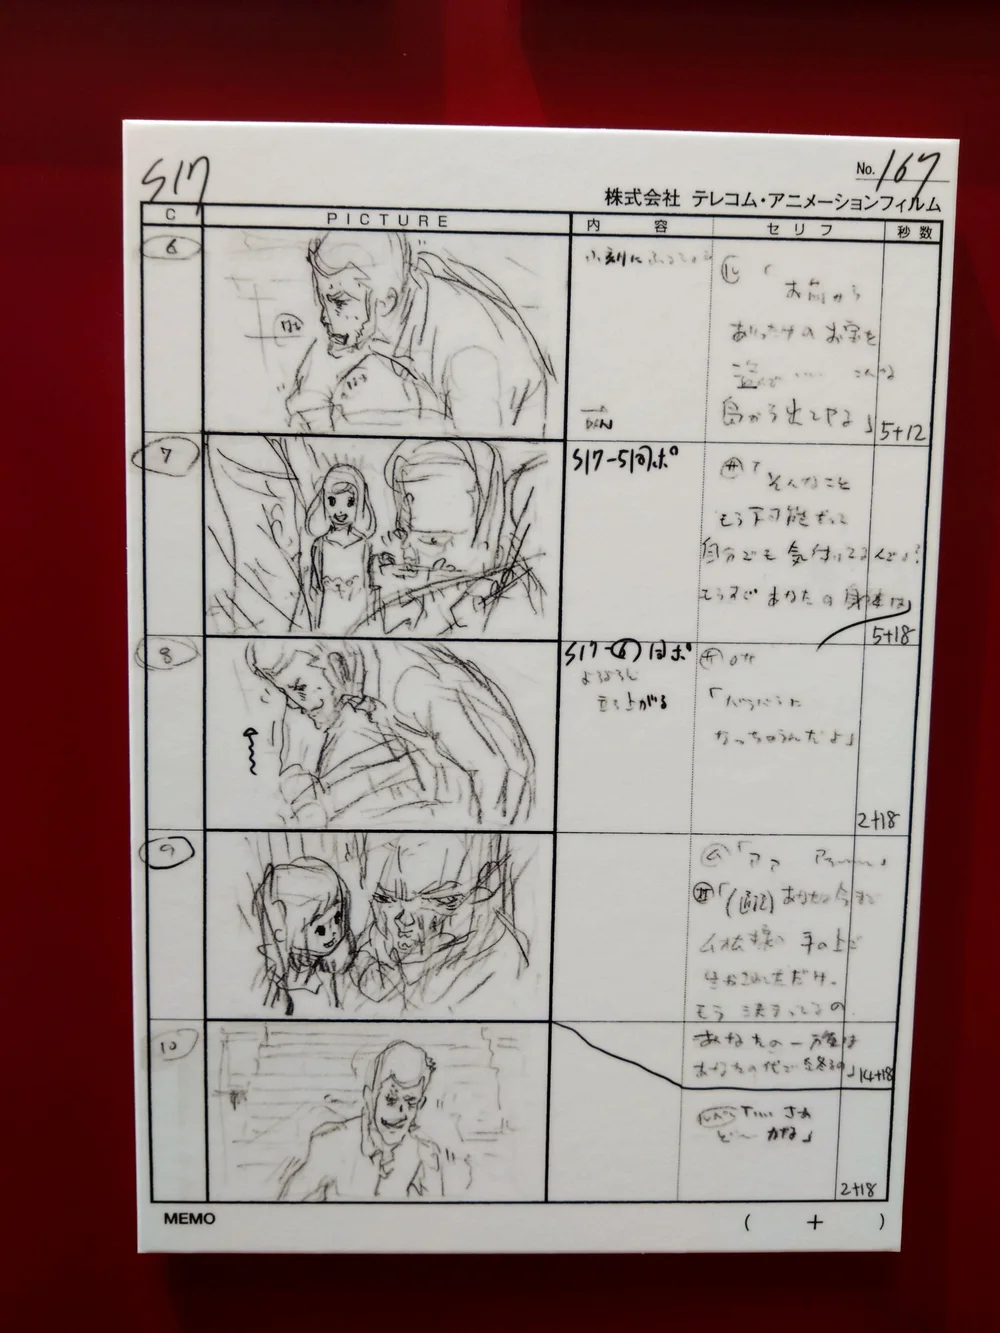 S17
No. 167
株式会社 テレコム・アニメーションフィルム
C PICTURE 内容 セリフ 秒数
6
小刻にふるえ
ル 「お前から
ありったけのお宝を
盗んで…… こんな
島から出てやる」
5+12
7
S17-5同ポ
サ 「そんなこと
もう不可能だって
自分でも気付いてるんでしょ?
もうすぐあなたの身体は
5+18
8
S17-6同ポ
よろよろし
立ち上がる
サ
「バラバラに
なっちゃうんだよ」
2+18
9
ム 「アア
サ 「 あなたは今まで
ム 様の 手の上で
生かされただけ。
もう 決まってるの。
あなたの一族は
あなたの代で終るの」
14+18
10
ルパン 「…… さあ
ど〜かな」
2+18
MEMO
( + )